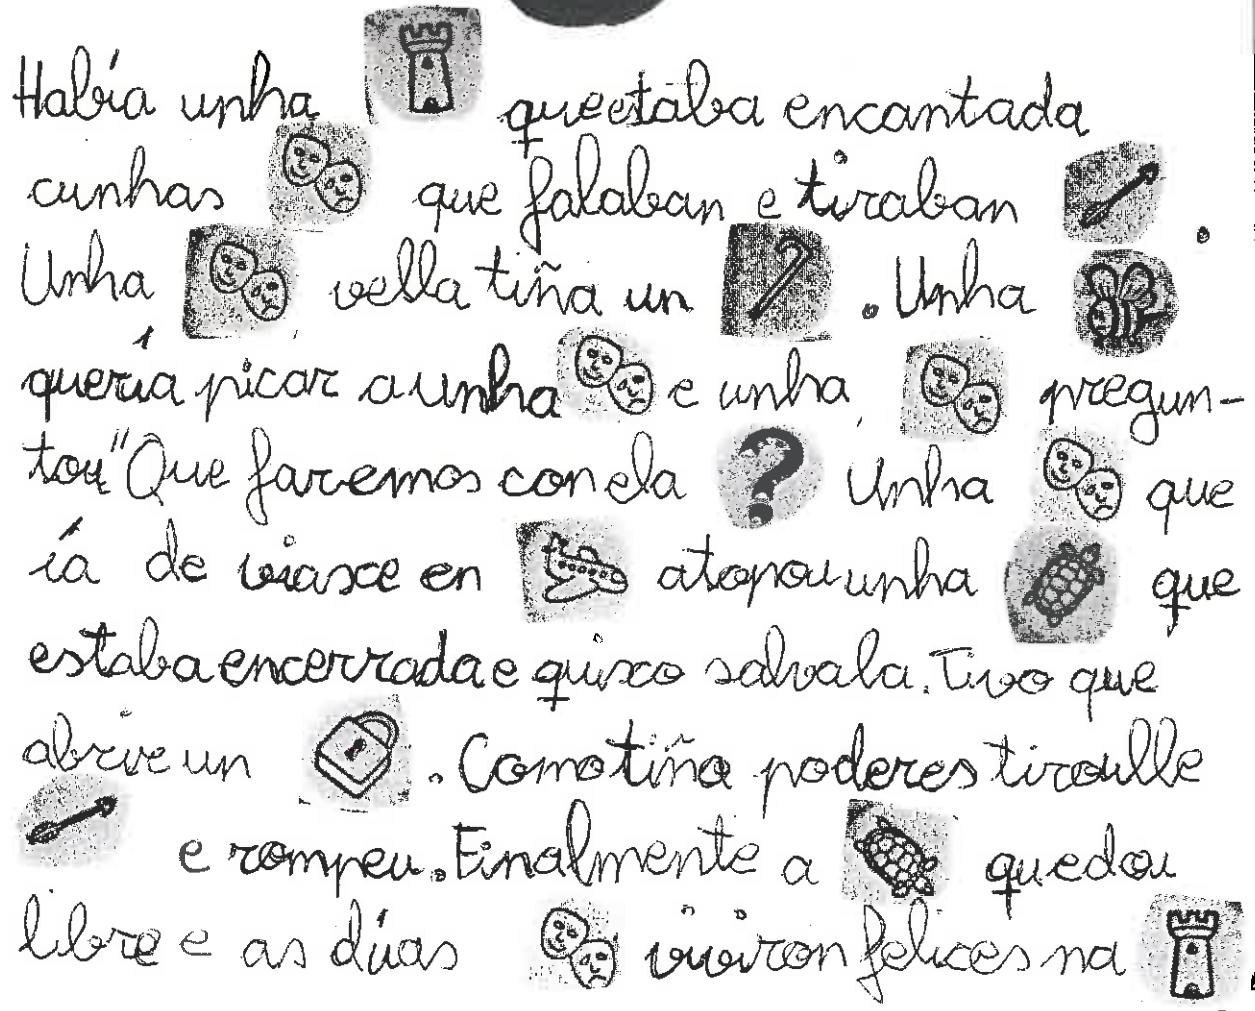 Había unha queetaba encantada
cunhas que falaban e tiraban .
Unha vella tiña un . Unha
quería picar a unha e unha pregun-
tou "Que faremos con ela ? Unha que
ía de viaxe en atopou unha que
estaba encerrada e quixo salvala. Tivo que
abrir un . Como tiña poderes tiroulle
e rompeu. Finalmente a quedou
libre e as dúas viviron felices na .